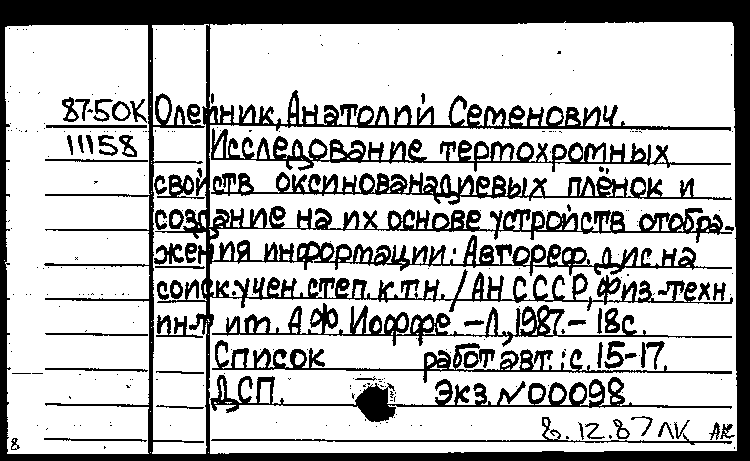 87-50К Олейник, Анатолий Семенович.
11158 Исследование термохромных
свойств оксиднованадиевых плёнок и
создание на их основе устройств отобра-
жения информации: Автореф. дис. на
соиск. учен. степ. к.т.н. / АН СССР, Физ.-техн.
ин-т им. А.Ф. Иоффе. - Л., 1987. - 18 с.
Список работ авт.: с. 15-17.
ДСП. Экз. № 00098.
8.12.87 ЛК
8